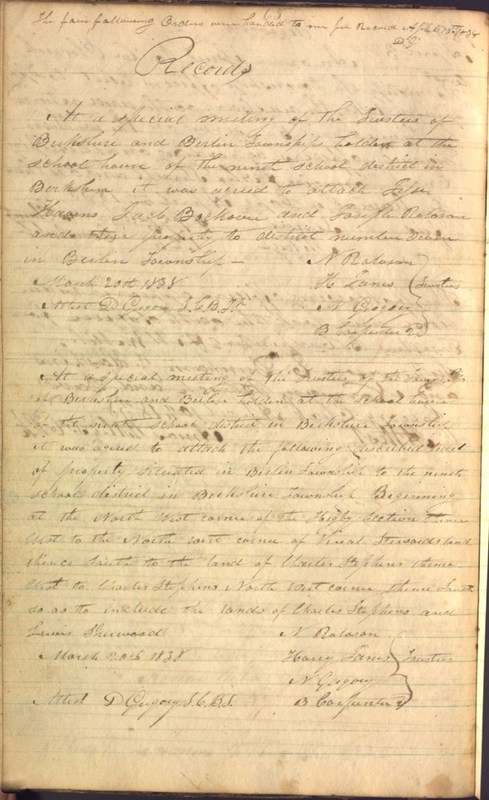 The following Orders were handed to me for Record April 13th 1838
D G
Records
At a special meeting of the Trustees of
Berkshire and Berlin Townships holden at the
school house of the ninth school district in
Berkshire it was agreed to attach
Jacob and Joseph Roloson
and their property to district number Seven
in Berlin Township — N Roloson
March 20th 1838 H Lanes Trustees
Attest D Gregory N Gregory
B Carpenter
At a special meeting of the Trustees of the Townships
of Berkshire and Berlin holden at the school house
of the ninth school district in Berkshire Township
it was agreed to attach the following described
of property situated in Berlin Township to the ninth
school district in Berkshire Township Beginning
at the North West corner of the Higby Section thence
West to the North west corner of land
thence South to the land of Charles Stephens thence
West to Charles Stephens North West corner thence South
so as to include the lands of Charles Stephens and
Lewis Sherwood N Roloson
March 20th 1838 Harry Lanes Trustees
N Gregory
Attest D Gregory B Carpenter